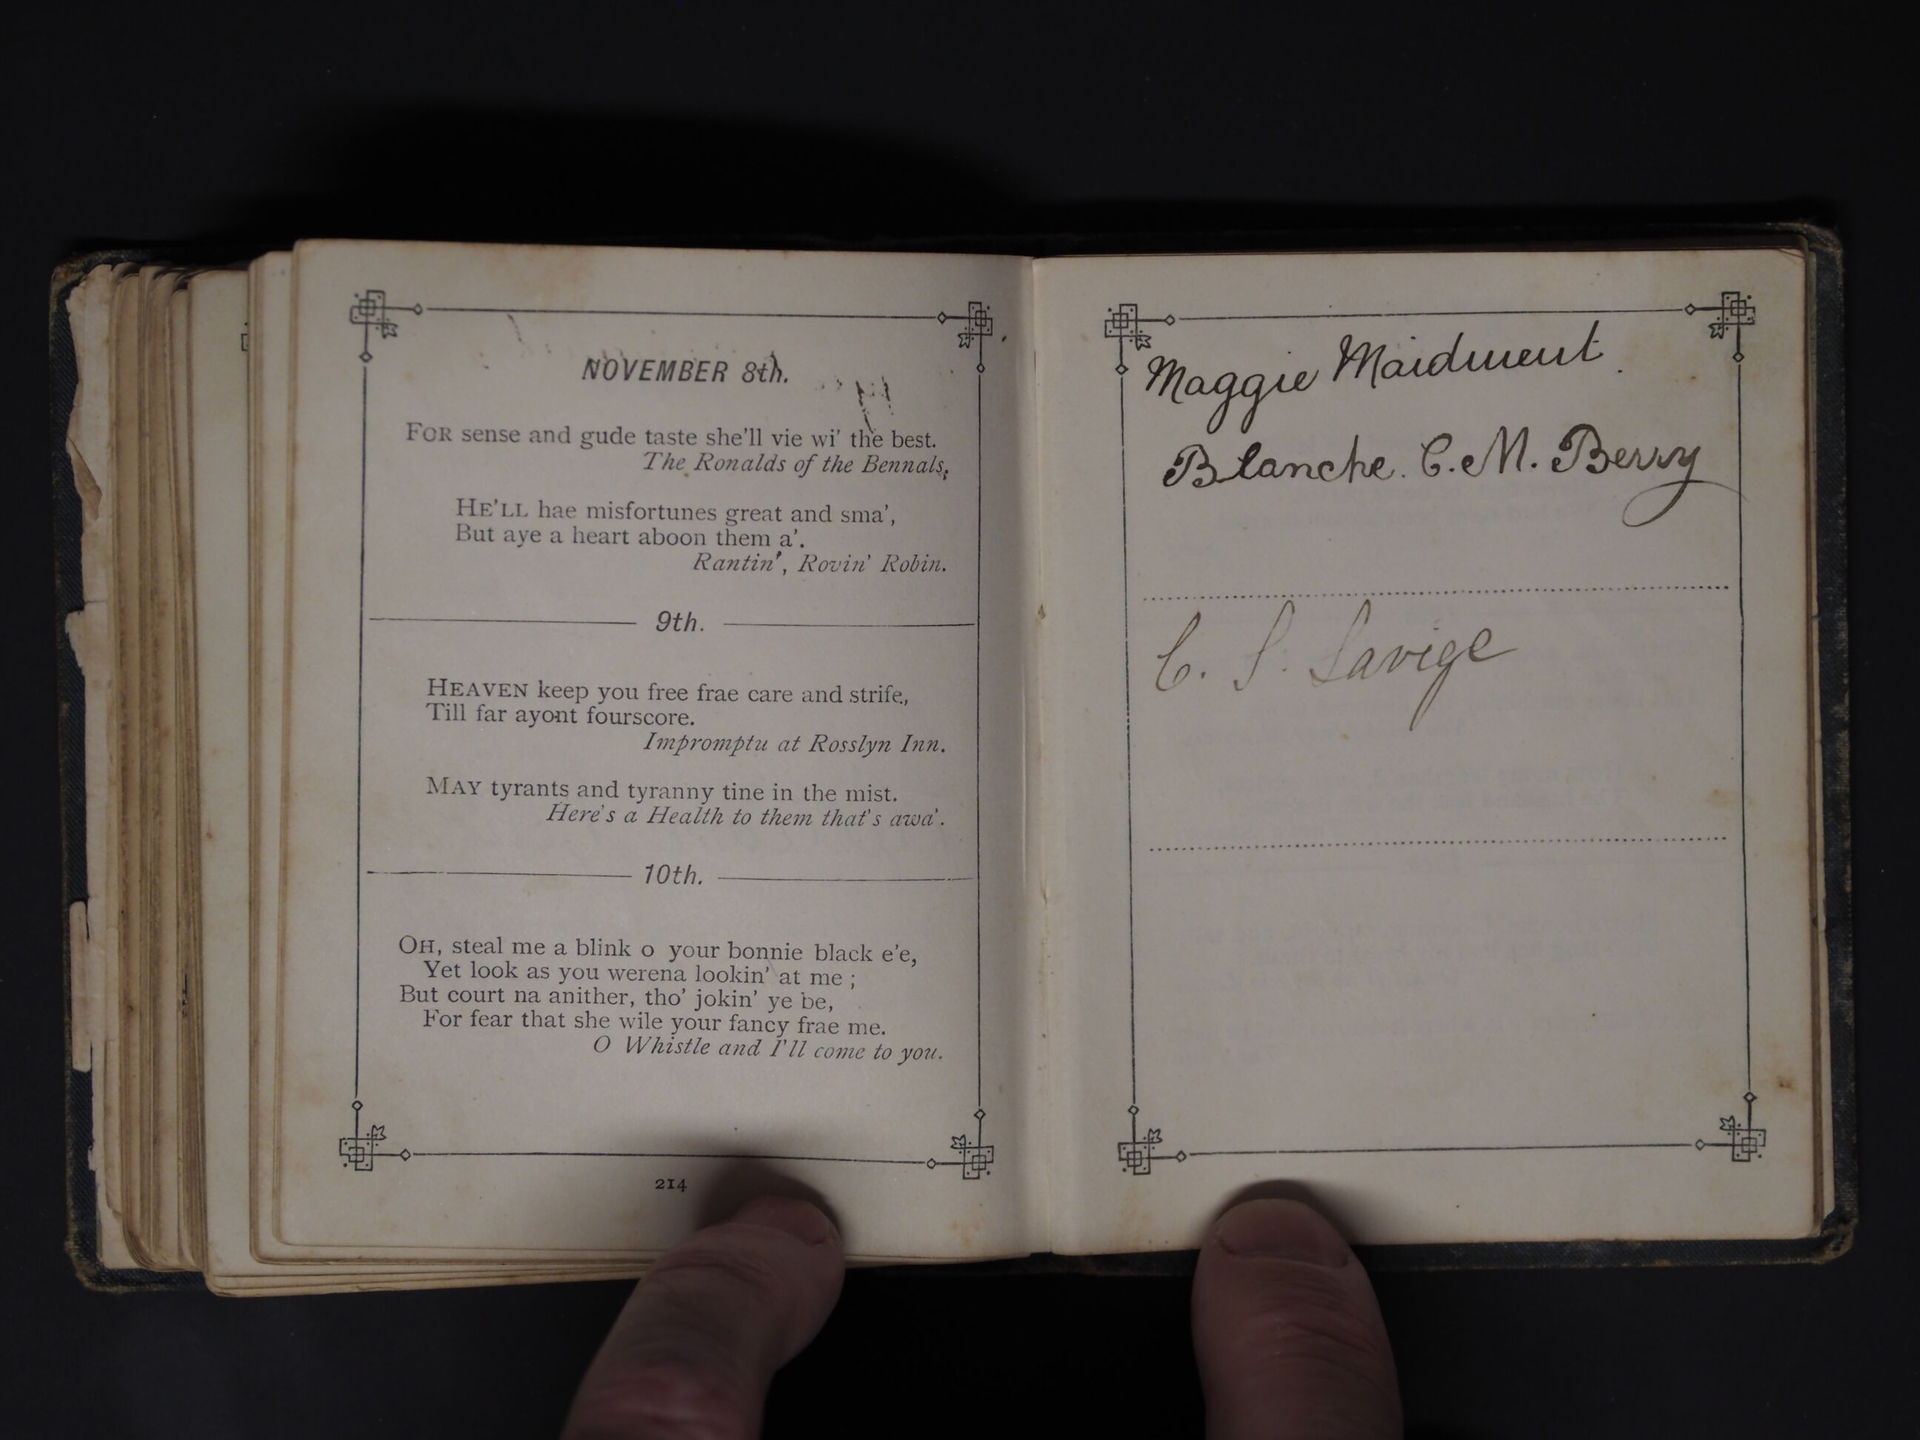 NOVEMBER 8th.
FOR sense and gude taste she'll vie wi' the best.
The Ronalds of the Bennals,
HE'LL hae misfortunes great and sma',
But aye a heart aboon them a'.
Rantin', Rovin' Robin.
9th.
HEAVEN keep you free frae care and strife,
Till far ayont fourscore.
Impromptu at Rosslyn Inn.
MAY tyrants and tyranny tine in the mist.
Here's a Health to them that's awa'.
10th.
OH, steal me a blink o your bonnie black e'e,
Yet look as you werena lookin' at me ;
But court na anither, tho' jokin' ye be,
For fear that she wile your fancy frae me.
O Whistle and I'll come to you.
214
Maggie Maidment.
Blanche. C. M. Berry
C. S. Savige